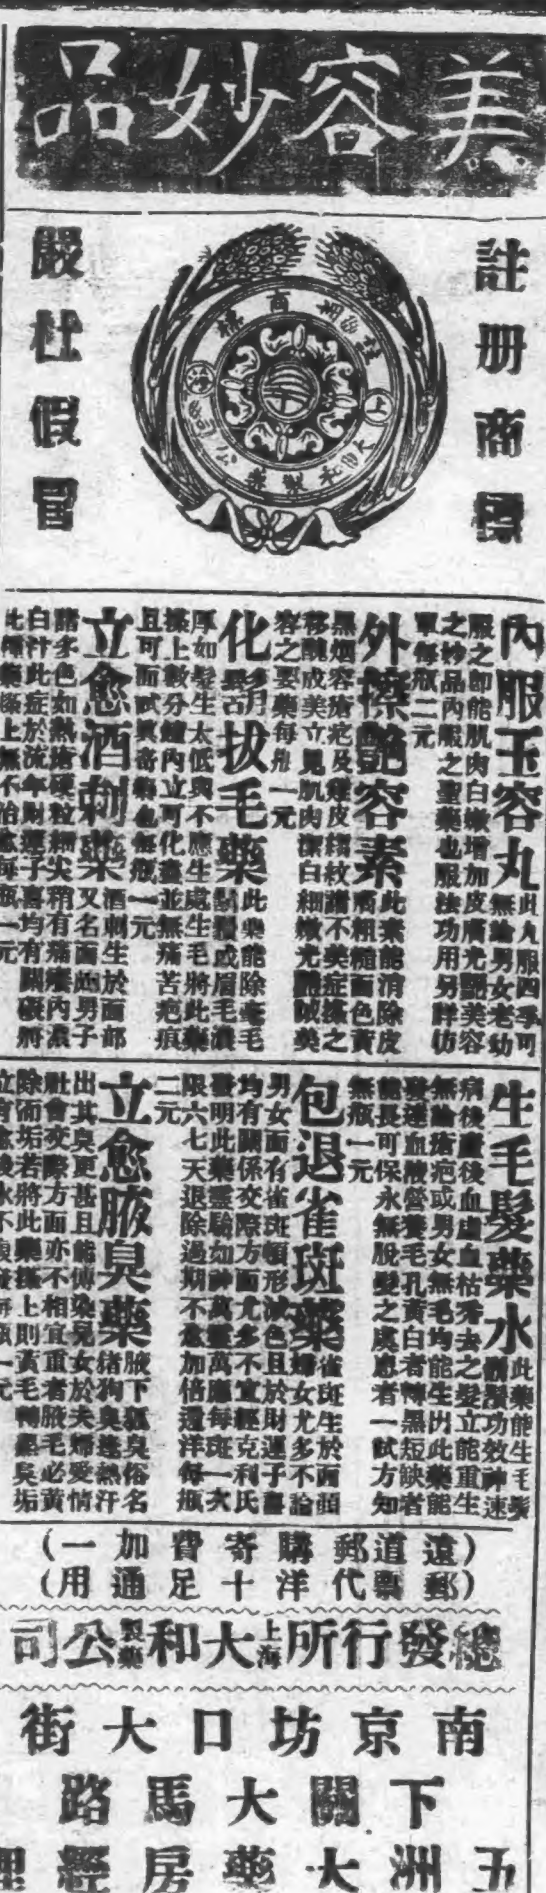 美容妙品
註册商標
嚴杜假冒
註册商標
上海
大和製藥公司
內服玉容丸
此丸服四季可
無論男女老幼
服之卽能肌肉白嫩增加皮膚光艷美容
之妙品內服之聖藥也服法功用另詳仿
單每瓶二元
外擦艷容素
此素能消除皮
膚粗糙面色黃
黑烟容瘡疤及雞皮縐紋諸不美症擦之
移醜成美立見肌肉潔白細嫩光艷誠美
容之要藥每瓶一元
化鬍拔毛藥
此藥能除毫毛
鬍鬚或眉毛濃
厚如髮生太低與不應生處生毛將此藥
擦上數分鐘內立可化盡並無痛苦疤痕
且可面試異常靈也每瓶一元
立愈酒刺藥
酒刺生於面部
又名面皰男子
諸多色如熱瘡硬粒細尖稍有痛癢內蒸
白汁此症於流年財運子喜均有關礙將
此藥擦上無不怡愈每瓶一元
生毛髮藥水
此藥能生毛髮
鬍鬚功效神速
病後產後血虛血枯禿去之髮立能重生
無論瘡疤或男女無毛均能生出此藥能
發達血液營養毛孔黃白者轉黑短缺者
能長可保永無脫髮之虞患者一試方知
每瓶一元
包退雀斑藥
雀斑生於面頭
婦女尤多不論
男女面有雀斑頓形減色且於財運子喜
均有關係交際方面尤多不宜經克利氏
發明此藥靈驗如神萬靈萬應每斑一次
限六七天退除過期不愈加倍還洋每瓶
二元
立愈腋臭藥
腋下狐臭俗名
猪狗臭逢熱汗
出其臭更甚且能傳染兒女於夫婦愛情
社會交際方面亦不相宜重者腋毛必黃
除而垢若將此藥擦上則黃毛轉黑臭垢
立消愈後永不復發每瓶一元
(遠道郵購寄費加一)
(郵票代洋十足通用)
總發行所上海大和製藥公司
南京坊口大街
下關大馬路
五洲大藥房經理